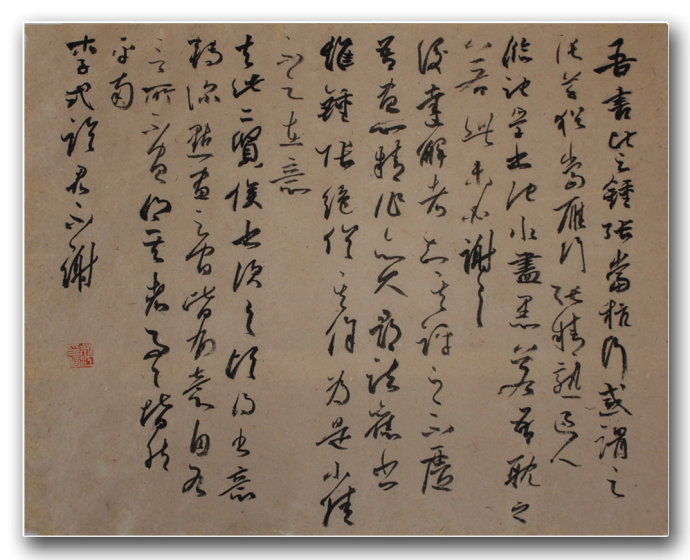 吾書比之鍾張當抗行或謂之
張草猶當雁行張精熟過人
臨池學書池水盡墨若吾耽之
若此未必謝之
後達解者知其評之不虛
吾盡心精作亦久尋諸舊書
惟鍾張絕倫其餘為是小佳
不足在意
去此二賢僕書次之須得書意
轉深點畫之間皆有意自有
言所不盡得其妙者事事皆然
平南
李式論君不謝